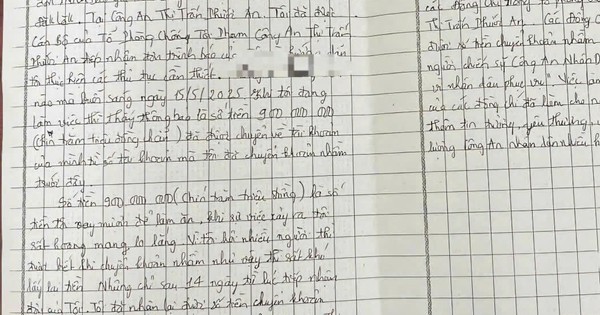 Tại Công An Thị Trấn Phước An. Tôi đã được
Cán Bộ của Tổ Phòng Chống Tội Phạm Công An Thị Trấn
Phước An tiếp nhận đơn trình báo
tôi thực hiện các thủ tục cần thiết.
nào mà buổi sáng ngày 15/5/2025 khi tôi đang
làm việc thì thấy thông báo là số tiền 900 000 000
(chín trăm triệu đồng chẵn) đã được chuyển về tài khoản
của mình từ số tài khoản mà tôi đã chuyển khoản nhầm
trước đây.
Số tiền 900 000 000 (Chín trăm triệu đồng) là số
tiền tôi vay mượn để làm ăn, khi sự việc xảy ra tôi
rất hoang mang, lo lắng. Vì tôi hỏi nhiều người thì
được biết khi chuyển khoản nhầm như vậy thì rất khó
lấy lại tiền. Nhưng chỉ sau 14 ngày từ lúc tiếp nhận
đơn của Tôi. Tôi đã nhận lại được số tiền chuyển khoản
các đồng chí
Thị Trấn Phước An. Các đồng
được số tiền chuyển khoản nhầm
người chiến sỹ Công An Nhân D
vì nhân dân phục vụ". Việc làm
của các đồng chí đã làm cho n
thêm tin tưởng, yêu thương,
lượng Công An nhân dân nhiều h